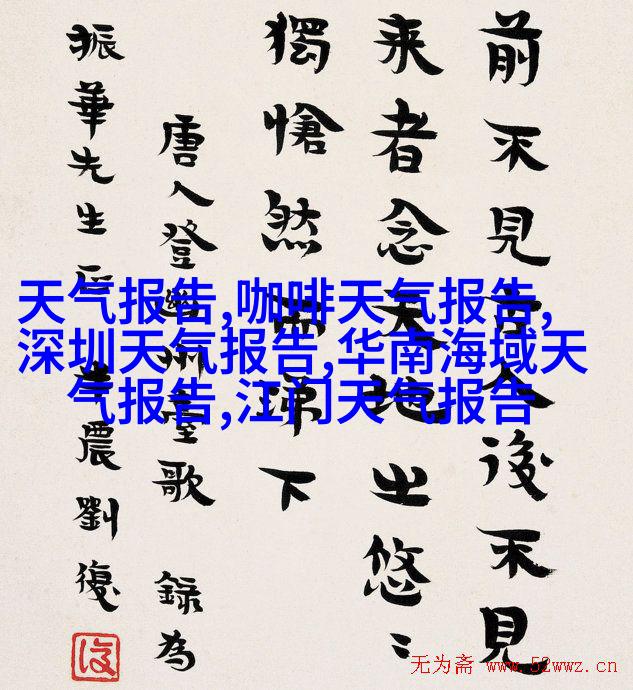 前不見古人後不見
来者念天地之悠〻
獨愴然而涕下
唐人登幽州臺歌 錄為
振華先生正 半農劉復
天气报告,咖啡天气报告,
深圳天气报告,华南海域天
气报告,江门天气报告
无为斋 www.52wwz.cn